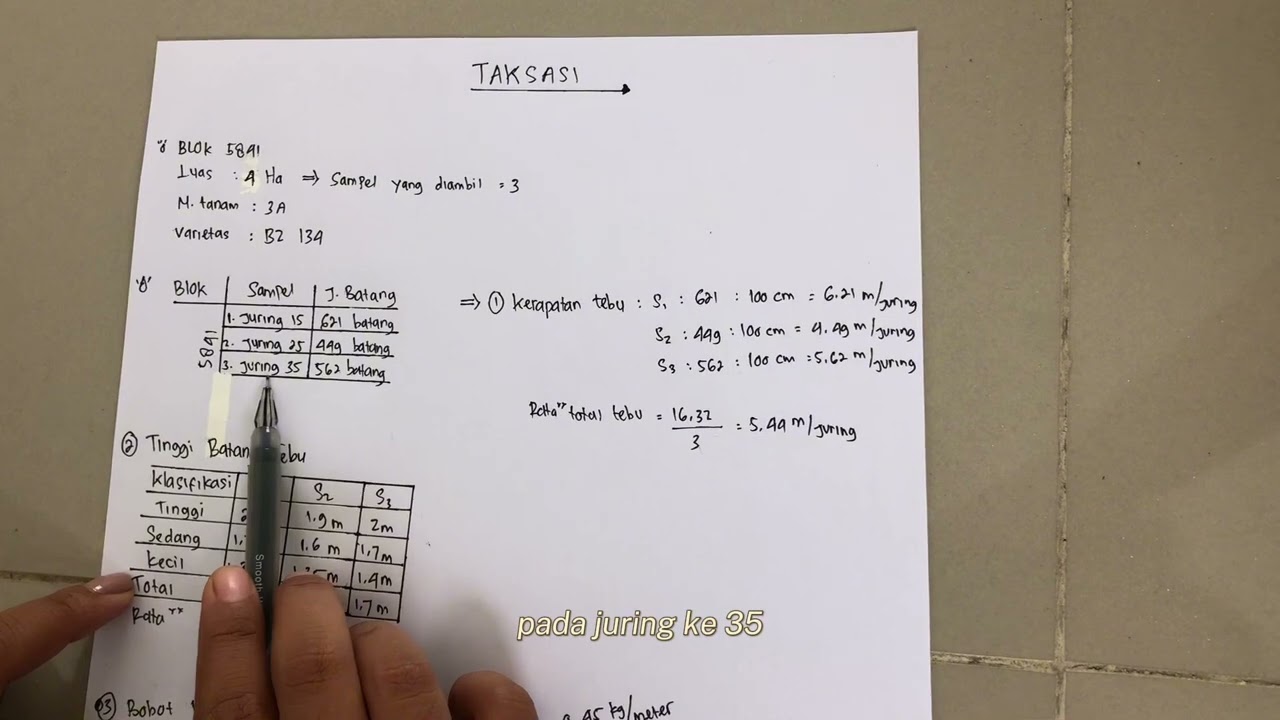 TAKSASI
BLOK 5891
Luas : 4 Ha ⇒ Sampel yang diambil = 3
M. tanam : 3A
Varietas : BZ 134
BLOK Sampel J. Batang
5891
1. Juring 15 621 batang
2. Juring 25 449 batang
3. Juring 35 562 batang
⇒ ① Kerapatan tebu : S1 : 621 : 100 cm = 6.21 m/juring
S2 : 449 : 100 cm = 4.49 m/juring
S3 : 562 : 100 cm = 5.62 m/juring
Rata" total tebu = 16,32 / 3 = 5.44 m/juring
② Tinggi Batang Tebu
Klasifikasi S2 S3
Tinggi 1.9 m 2m
Sedang 1.6 m 1,7m
Kecil 1.4m
Total 1.7m
Rata"
Smooth
pada juring ke 35
03 Bobot
kg/meter